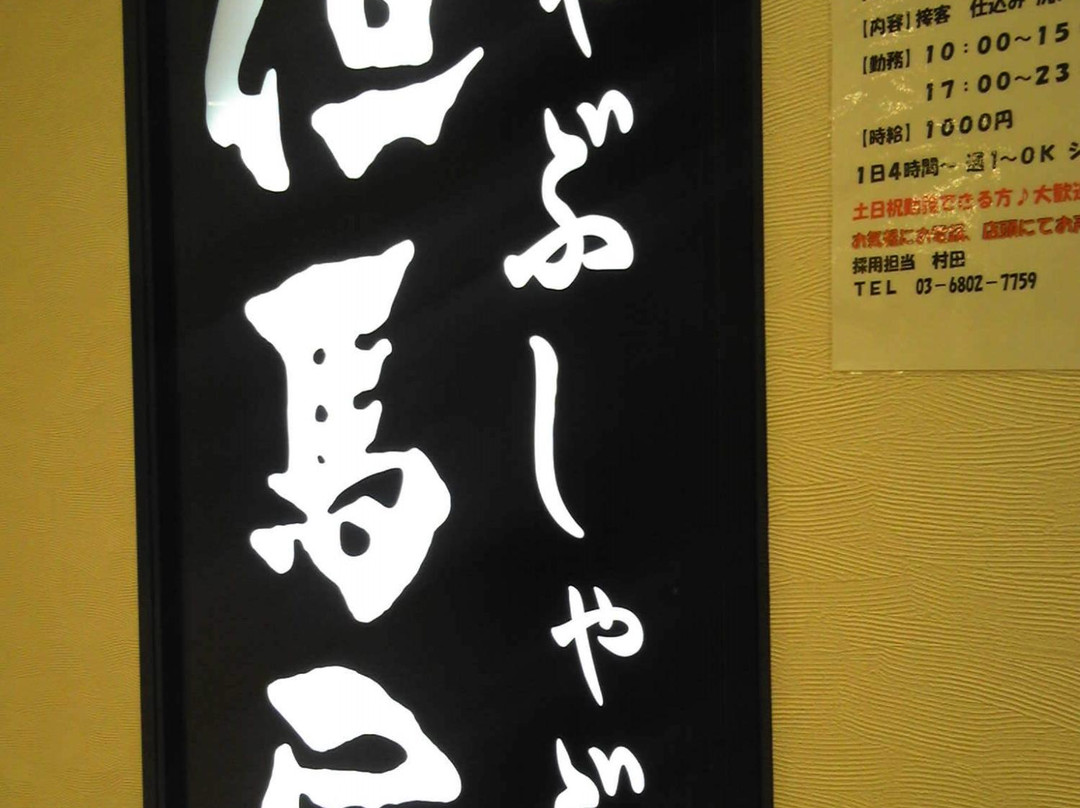 ゃぶしゃぶ
但馬
【内容】接客 仕込み
【勤務】10:00〜15
17:00〜23
【時給】1000円
1日4時間〜 週1〜OK シ
土日祝勤務できる方♪大歓迎
お気軽にお電話、店頭にてお声
採用担当 村田
TEL 03-6802-7759